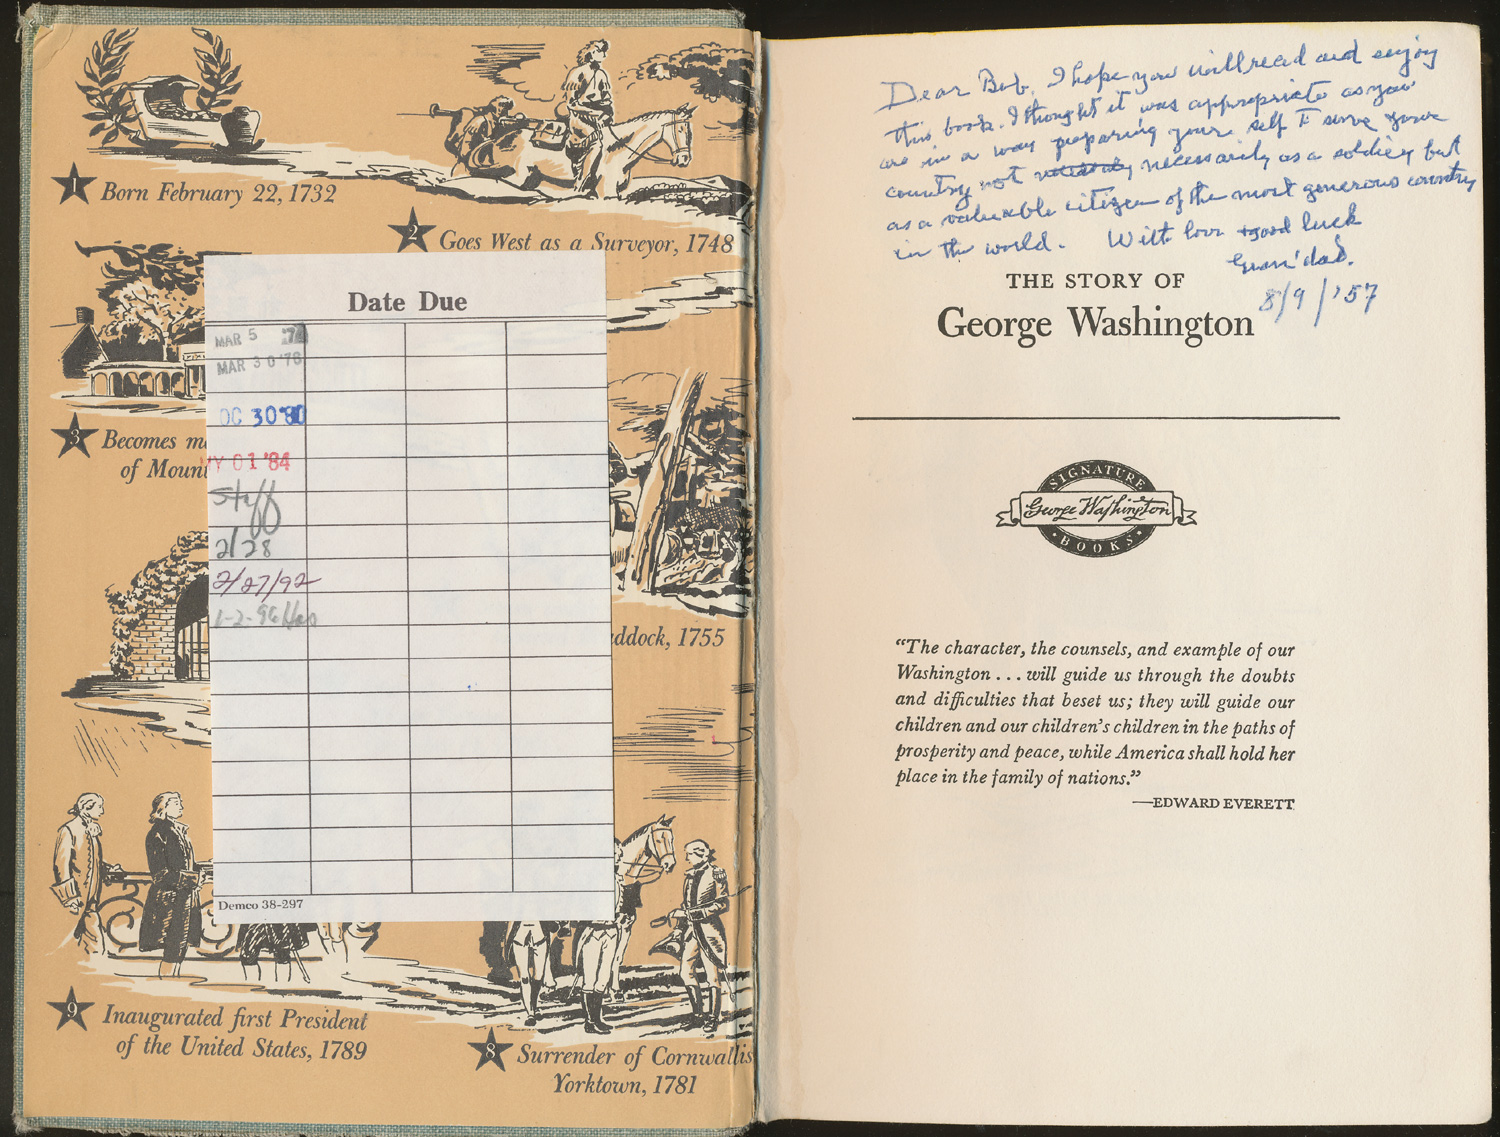 1 Born February 22, 1732
2 Goes West as a Surveyor, 1748
3 Becomes ma
of Mount
ddock, 1755
9 Inaugurated first President
of the United States, 1789
8 Surrender of Cornwallis
Yorktown, 1781
Date Due
MAR 5
MAR 30 '78
OC 30 '80
MY 01 '84
Staff
2/28
2/27/92
1-2-96
Demco 38-297
Dear Bub, I hope you will read and enjoy
this book. I thought it was appropriate as you
are in a way preparing your self to serve your
country not necessarily as a soldier but
as a valuable citizen of the most generous country
in the world. With love + good luck
Gran'dad.
8/9/'57
THE STORY OF
George Washington
SIGNATURE
George Washington
BOOKS
“The character, the counsels, and example of our
Washington . . . will guide us through the doubts
and difficulties that beset us; they will guide our
children and our children’s children in the paths of
prosperity and peace, while America shall hold her
place in the family of nations.”
—EDWARD EVERETT